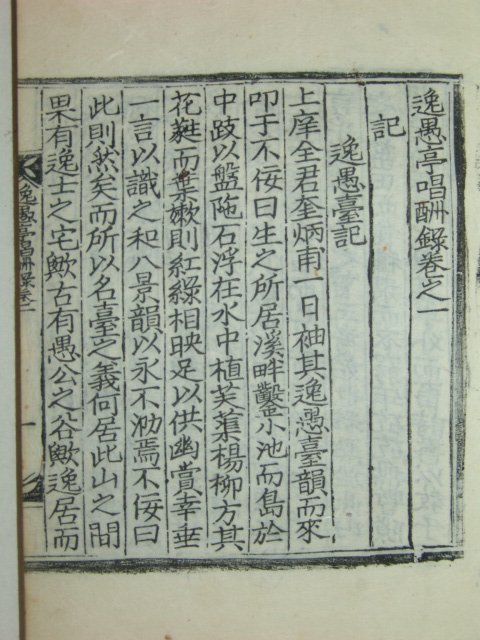 逸愚亭唱酬錄卷之一
記
逸愚臺記
上庠全君奎炳甫一日袖其逸愚臺韻而來
叩于不佞曰生之所居溪畔鑿小池而島於
中跂以盤陁石浮在水中植芙蕖楊柳方其
花蕤而葉嫩則紅綠相映足以供幽賞幸垂
一言以識之和八景韻以永不泐焉不佞曰
此則然矣而所以名臺之義何居此山之間
果有逸士之宅歟古有愚公之谷歟逸居而
逸愚亭唱酬錄卷一
一